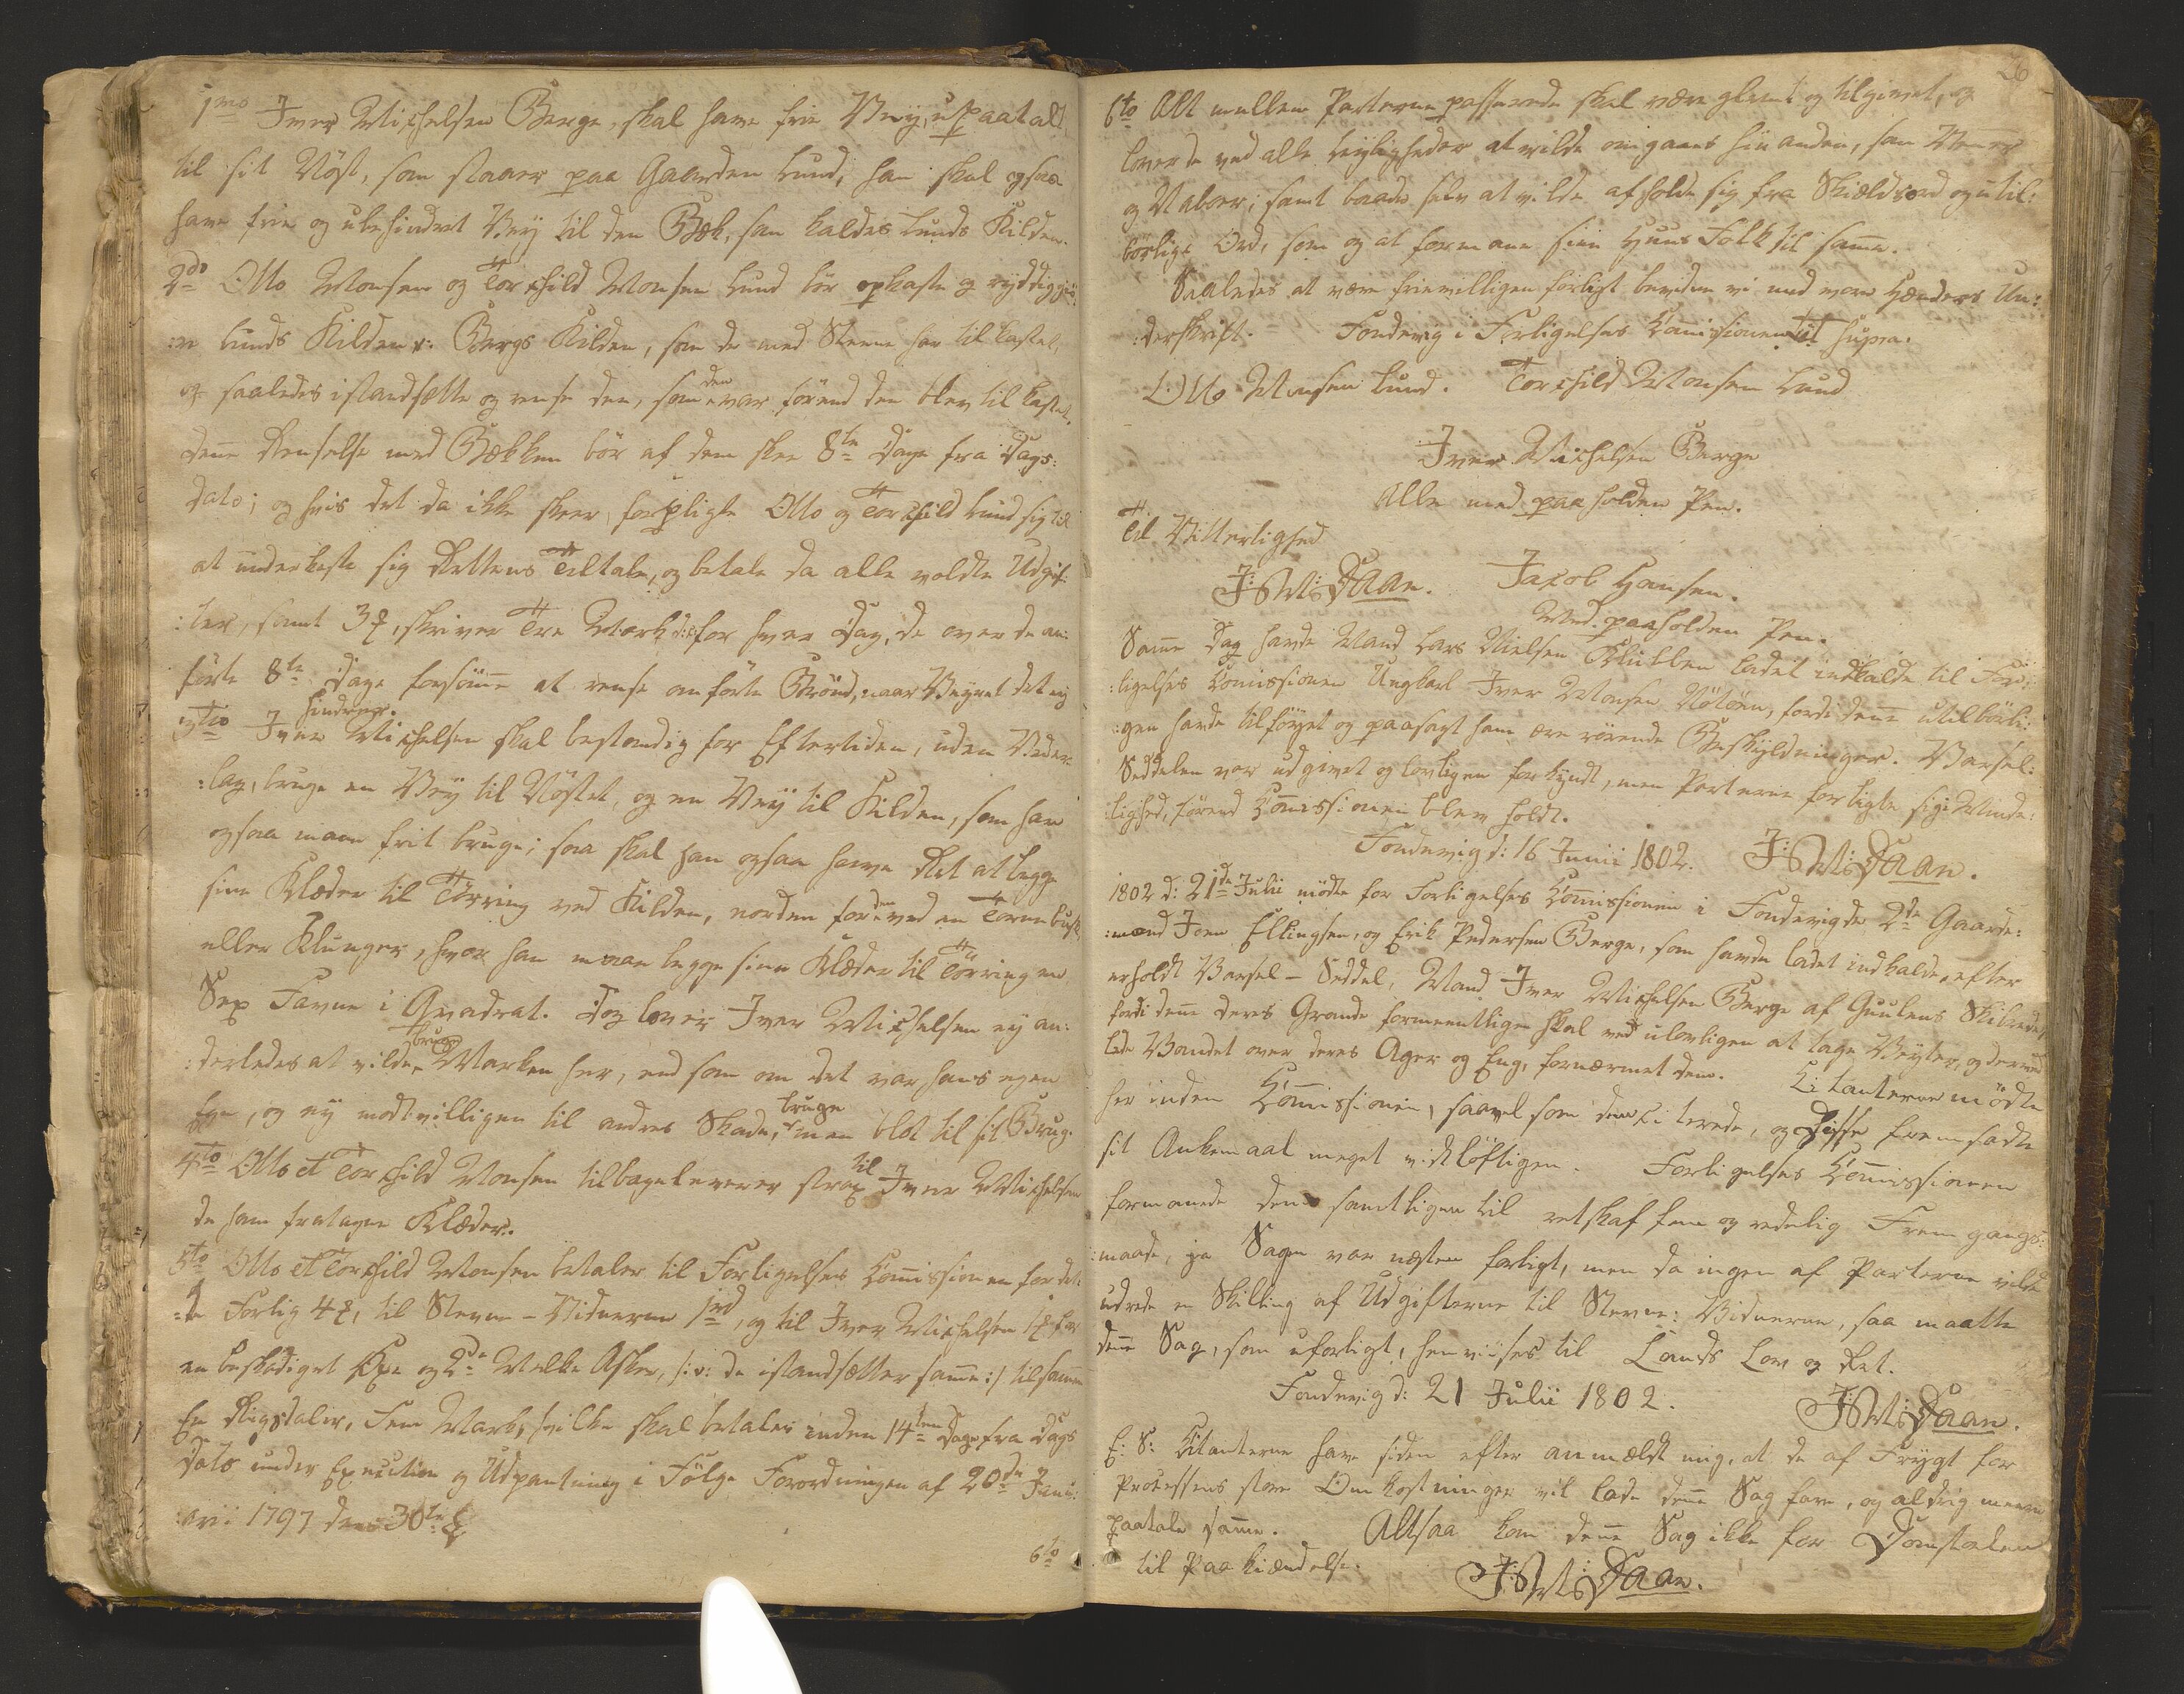 1mo Iver Michelsen Berge, skal have frie Veiy, upaatalt,
til sit Nøst, som staaer paa Gaarden Lund, han skal ogsaa
have frie og ubehindret Veiy til den Bæk, som kaldes Lunds Kilden.
2do Otto Monsen og Torchild Monsen Lund bør opkaste og ryddiggiø:
:re Lunds Kilden v: Bergs Kilden, som de med Steene har tilkastet,
og saaledes istandsætte og rense den, som den var førend den blev tilkastet.
Denne Renselse med Bækken bør af dem skee 8te Dage fra Dags:
dato; og hvis det da ikke skeer, forpligte Otto og Torchild Lund sig til
at underkaste sig Rettens Tiltale, og betale da alle voldte Udgif:
:ter, samt 3 , skriver Tre Mark d: for hver Dag, de over de an:
førte 8te Dage forsømme at rense anførte Brønd, naar Veyret det ey
hindrer.
3tio Iver Michelsen skal bestandig for Eftertiden, uden Veder:
:lag, bruge en Veiy til Nøstet, og en Veiy til Kilden, som han
ogsaa maae frit bruge; saa skal han ogsaa have Ret at legge
sine Klæder til Tørring ved Kilden, norden for den ved en Tornebusk,
eller Klunger, hvor han maae legge sine Klæder til Tørring en
Sex Favne i Qvadrat. Dog lover Iver Michelsen ey an:
:derledes at vilde bruge Marken her, end som om det var hans egen
Eye, og ey modtvilligen til andres Skade, bruge men blot til sit Brug.
4to Otto et Torchild Monsen tilbageleverer strax til Iver Michelsen
de ham fratagne Klæder.
5to Otto et Torchild Monsen betaler til Forligelses Commissionen for det:
:te Forlig 4 , til Stevne-Vidnerne 1 rd, og til Iver Michelsen 1 for
en beskadiget Øxe og 2de Melke Asker, /: o: de istandsætter samme :/ tilsammen
En Rigsdaler, Fem Mark, hvilke skal betales inden 14ten Dage fra Dags
Dato under Execution og Udpantning i Følge Forordningen af 20de Janu:
:arii 1797 dens 30te §
6to
26
6to Alt mellem Parterne passerede skal være glemt og tilgivet, og
lovede ved alle Leyligheder at vilde omgaaes hinanden, som Venner
og Naboer; samt baade selv at vilde afholde sig fra Skieldsord og util:
børlige Ord, som og at formane sine Huus Folk til samme.
Saaledes at være frievilligen forligt bevidne vi med vore Hænders Un:
:derskrift. Fondevig i Forligelses Commissionen ut supra.
Otto Monsen Lund. Torchild Monsen Lund
Iver Michelsen Berge
Alle med paaholden Pen.
Til Vitterlighed
J: M: Daae. Jacob Hansen.
Med paaholden Pen.
Samme Dag havde Mand Lars Nielsen ladet indkalde til For:
:ligelses Commissionen Ungkarl Iver Monsen, fordi denne utilbørli:
:gen havde tilføyet og paasagt ham ære rørende Beskyldninger. Varsel:
Seddelen var udgivet og lovligen forkyndt, men Parterne forligte sig i Minde:
:lighed, førend Commissionen blev holdt.
Fondevig d: 16 Junii 1802. J: M: Daae.
1802 d: 21de Julii mødte for Forligelses Commissionen i Fondevig de 2de Gaard:
:mænd Joen Ellingsen, og Erik Pedersen Berge, som havde ladet indkalde, efter
erholdt Varsel-Seddel, Mand Iver Michelsen Berge af Guulens Skibrede,
fordi denne deres Grande formeentligen skal ved ulovligen at tage Veyter, og derved
lede Vandet over deres Ager og Eng, fornærmet dem. Citanterne mødte
her inden Commissionen, saavel som den Citerede, og Disse fremsadte
sit Ankemaal meget vidtløftigen. Forligelses Commissionen
formanede dem samtligen til retskaffen og redelig Fremgangs:
:maade, ja Sagen var næsten forligt, men da ingen af Parterne vilde
udrede en Skilling af Udgifterne til Stevne: Vidnerne, saa maatte
denne Sag, som uforligt, henviises til Lands Lov og Ret.
Fondevig d: 21 Julii 1802. J: M: Daae.
E: S: Citanterne have siden efter anmældt mig, at de af Frygt for
Processens store Omkostninger vil lade denne Sag fare, og aldrig meere
paatale samme. Altsaa kom denne Sag ikke for Domstolen
til Paakiændelse. J: M: Daae.